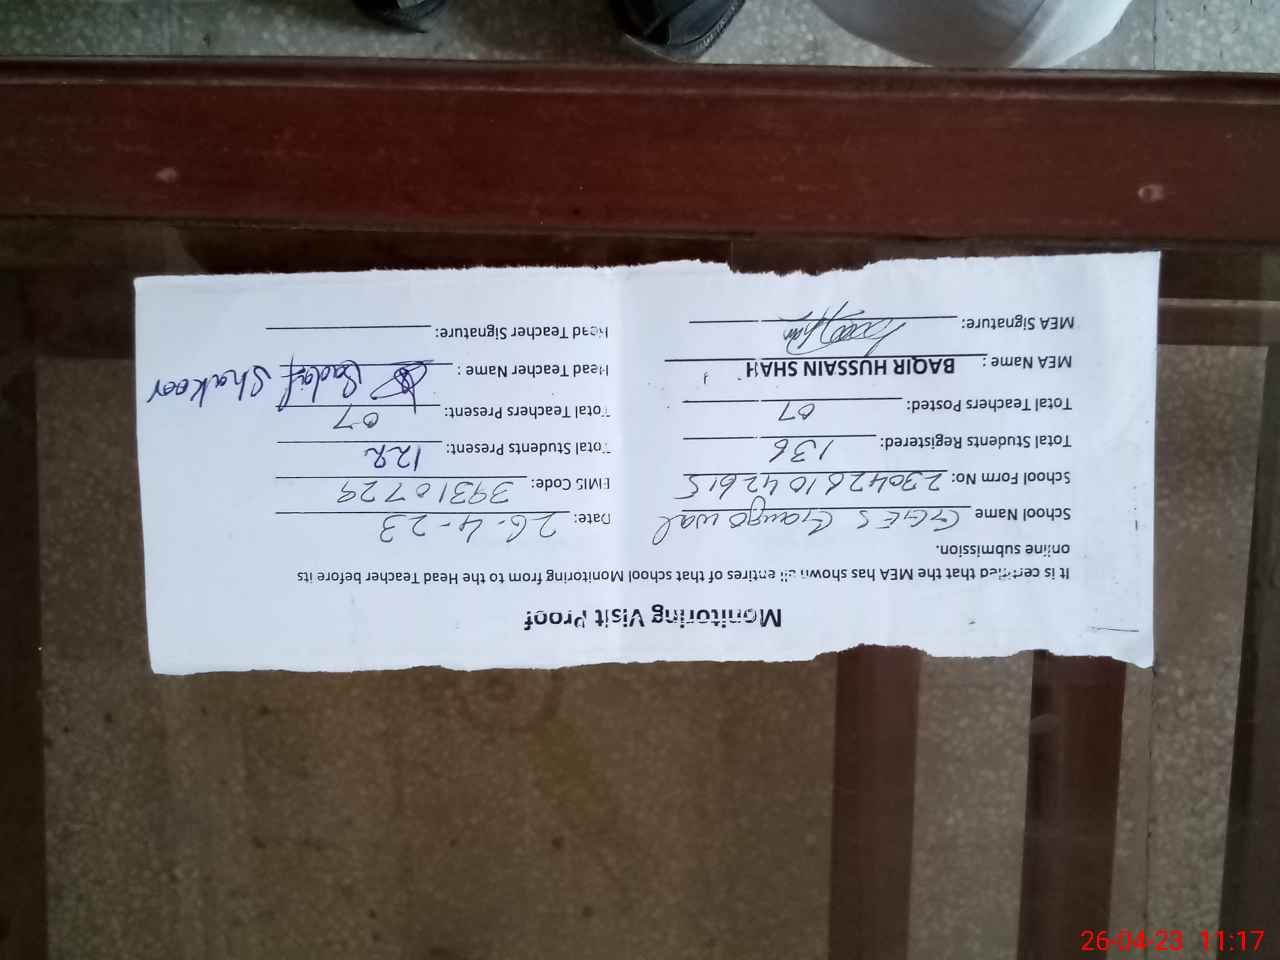 Monitoring Visit Proof
It is certified that the MEA has shown all entires of that school Monitoring from to the Head Teacher before its
online submission.
School Name GGES Gangowal Date: 26-4-23
School Form No: 2304261042615 EMIS Code: 39310729
Total Students Registered: 136 Total Students Present: 122
Total Teachers Posted: 07 Total Teachers Present: 07
MEA Name: BAQIR HUSSAIN SHAH Head Teacher Name: Sadaf Shakoor
MEA Signature: Head Teacher Signature:
26-04-23 11:17